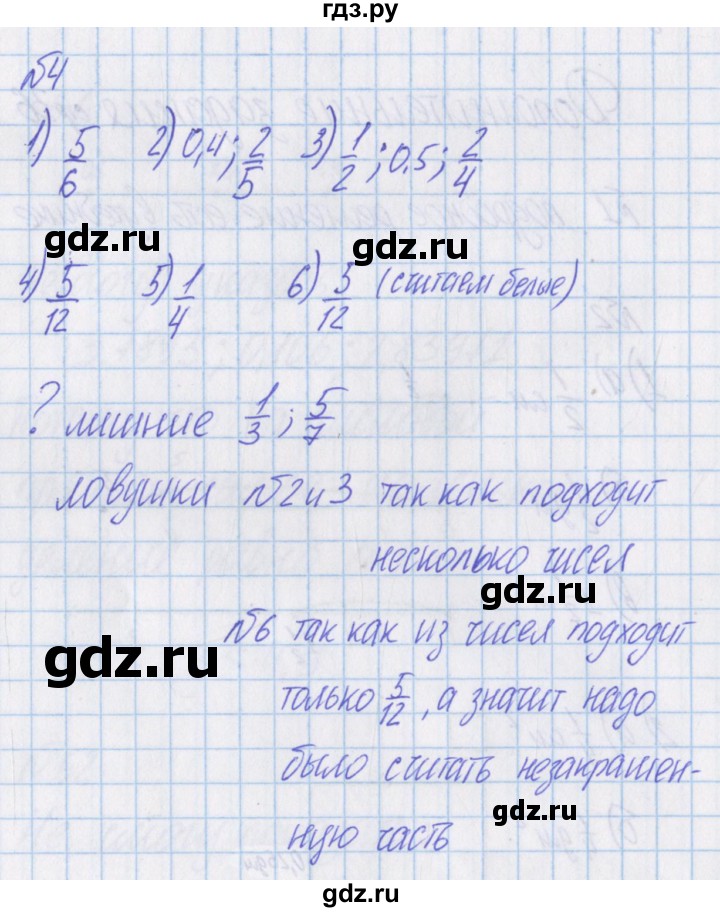 гдз.ру
№4
1) 5/6 2) 0,4; 2/5 3) 1/2; 0,5; 2/4
gdz.ru gdz.ru
4) 5/12 5) 1/4 6) 5/12 (считаем белые)
? лишние 1/3; 5/7
ловушки №2 и 3 так как подходит
несколько чисел
gdz.ru
№6 так как из чисел подходит
gdz.ru
только 5/12, а значит надо
было считать незакрашен-
gdz.ru
ную часть
gdz.ru